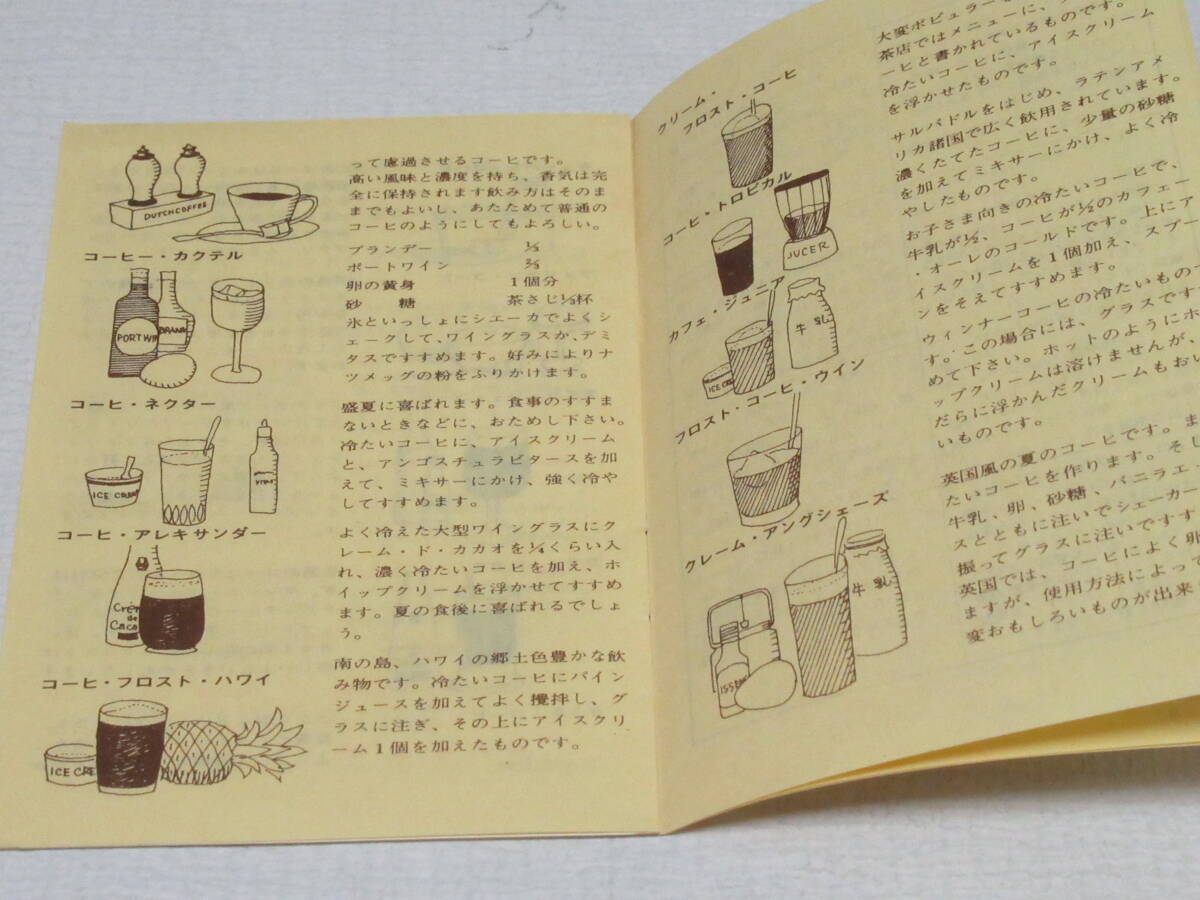 DUTCH COFFEE
って慮過させるコーヒです。
高い風味と濃度を持ち、香気は完
全に保持されます飲み方はそのま
までもよいし、あたためて普通の
コーヒのようにしてもよろしい。
コーヒー・カクテル
PORT WI
BRAN
ブランデー ⅓
ポートワイン ⅔
卵の黄身 1個分
砂 糖 茶さじ⅓杯
氷といっしょにシエーカでよくシ
ェークして、ワイングラスか、デミ
タスですすめます。好みによりナ
ツメッグの粉をふりかけます。
コーヒ・ネクター
ICE CREAM
盛夏に喜ばれます。食事のすすま
ないときなどに、おためし下さい。
冷たいコーヒに、アイスクリーム
と、アンゴスチュラビタースを加
えて、ミキサーにかけ、強く冷や
してすすめます。
コーヒ・アレキサンダー
Crém
de
Caca
よく冷えた大型ワイングラスにク
レーム・ド・カカオを¼くらい入
れ、濃く冷たいコーヒを加え、ホ
イップクリームを浮かせてすすめ
ます。夏の食後に喜ばれるでしょ
う。
コーヒ・フロスト・ハワイ
ICE CRE
南の島、ハワイの郷土色豊かな飲
み物です。冷たいコーヒにパイン
ジュースを加えてよく攪拌し、グ
ラスに注ぎ、その上にアイスクリ
ーム1個を加えたものです。
クリーム・
フロスト・コーヒ
大変ポピュラー
茶店ではメニューに、
ーヒと書かれているものです。
冷たいコーヒに、アイスクリーム
を浮かせたものです。
コーヒ・トロピカル
JUCER
サルバドルをはじめ、ラテンアメ
リカ諸国で広く飲用されています。
濃くたてたコーヒに、少量の砂糖
を加えてミキサーにかけ、よく冷
やしたものです。
カフェ・ジュニア
牛乳
ICE C
お子さま向きの冷たいコーヒで、
牛乳が½、コーヒが½のカフェー
・オーレのコールドです。上にア
イスクリームを1個加え、スプー
ンをそえてすすめます。
フロスト・コーヒ・ウイン
ウィンナーコーヒの冷たいもの
す。この場合には、グラスです
めて下さい。ホットのようにホ
ップクリームは溶けませんが、
だらに浮かんだクリームもおい
いものです。
クレーム・アングシェーズ
牛乳
英国風の夏のコーヒです。ま
たいコーヒを作ります。そし
牛乳、卵、砂糖、バニラエ
スとともに注いでシェーカー
振ってグラスに注いですす
英国では、コーヒによく卵
ますが、使用方法によって
変おもしろいものが出来